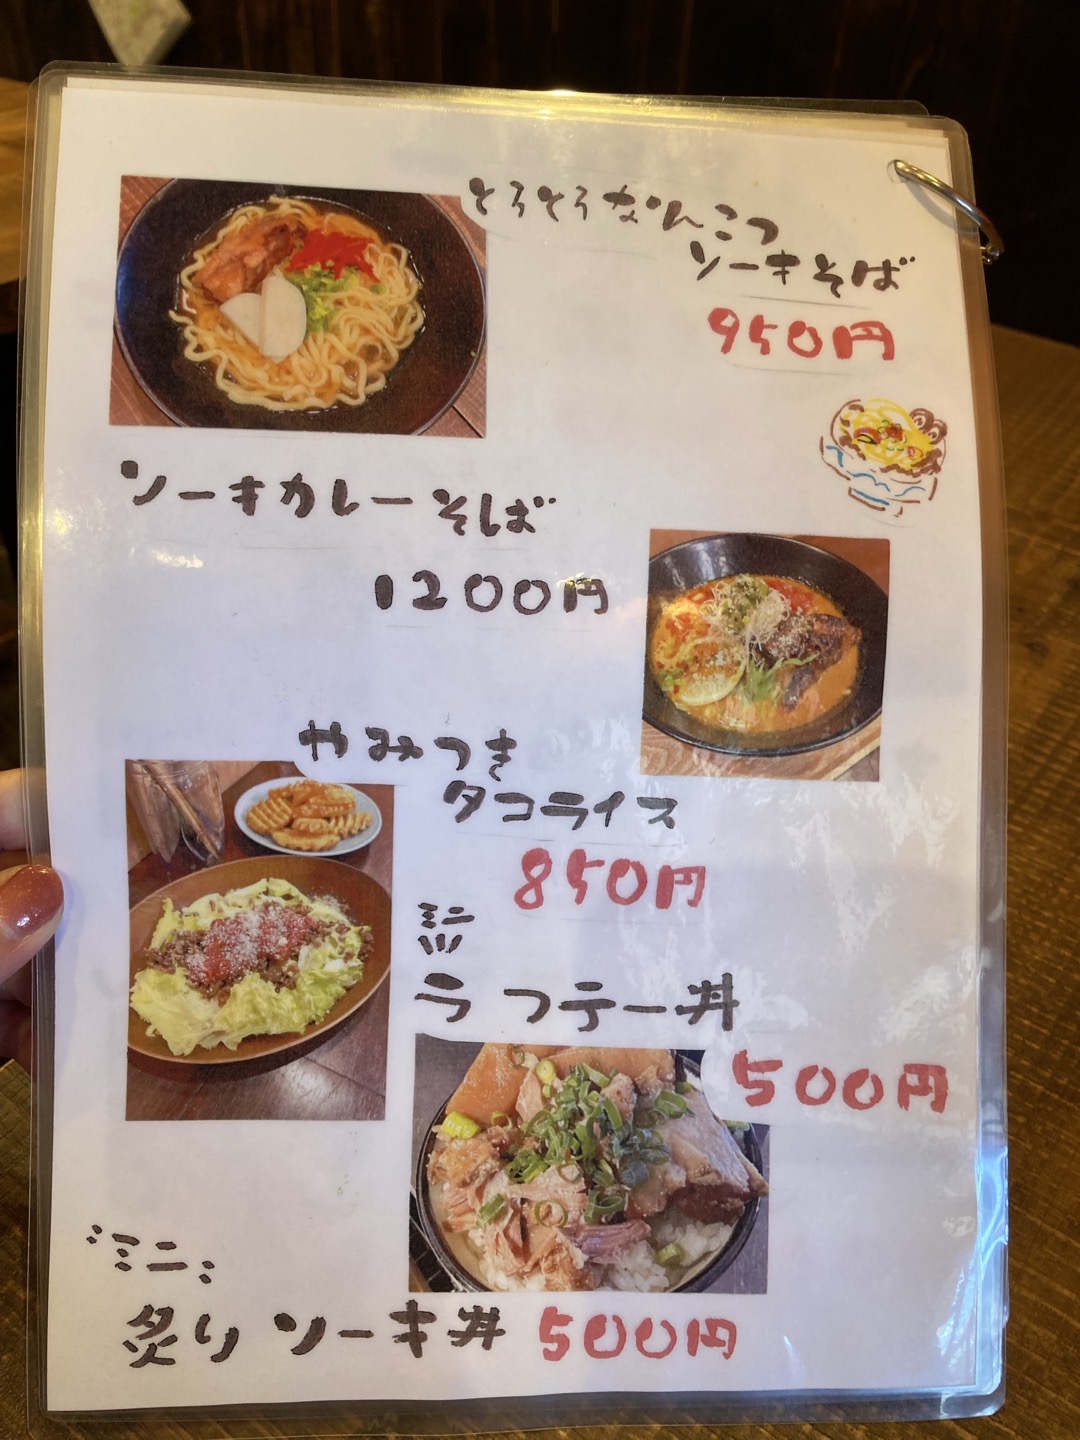 とろとろなんこつ
ソーキそば
950円
ソーキカレーそば
1200円
やみつき
タコライス
850円
ミニ
ラフテー丼
500円
ミニ
炙りソーキ丼 500円